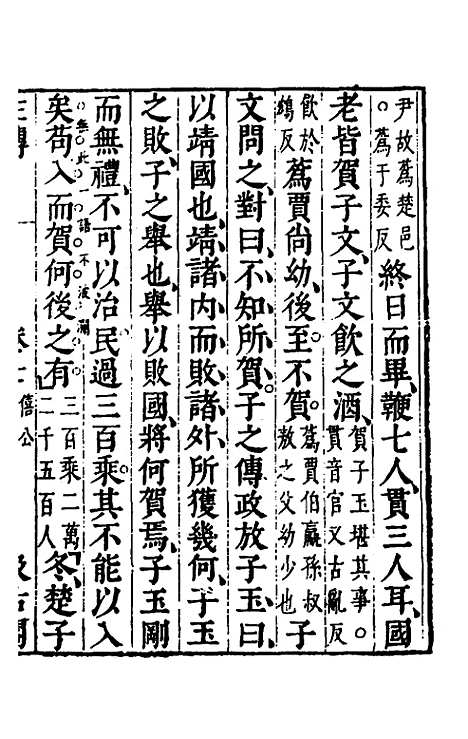 尹故蔿楚邑
○蔿于委反
終日而畢、鞭七人、貫三人耳、國
老皆賀子文、子文飲之酒、
賀子玉堪其事○
貫音官又古亂反
飲於
鴆反
蔿賈尚幼、後至、不賀。
蔿賈伯嬴孫叔
敖之父幼少也
子
文問之、對曰、不知所賀。子之傳政放子玉、曰、
以靖國也、靖諸內而敗諸外、所獲幾何、子玉
之敗、子之舉也、舉以敗國、將何賀焉、子玉剛
而無禮、不可以治民、過三百乘。其不能以入
無此一語不波瀾
矣、苟入而賀、何後之有
三百乘二萬
二千五百人
冬、楚子
僖公